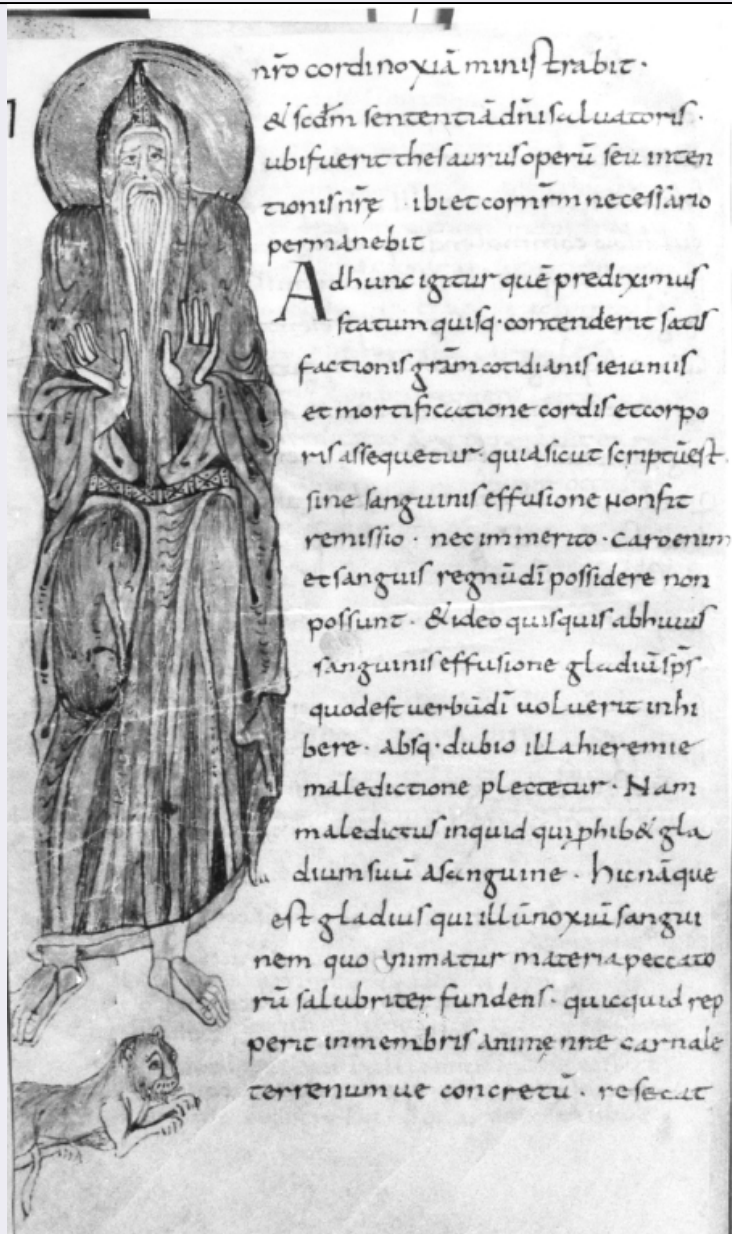 nr̄o cordi noxiā ministrabit ·
& scdm̄ sententiā dn̄i saluatoris ·
ubi fuerit thesaurus operū seu inten
tionis nr̄ę · ibi et cor nr̄m necessario
permanebit
Ad hunc igitur quē prediximus
statum quisq· contenderit satis
factionis grām cotidianis ieiuniis
et mortificatione cordis et corpo
ris assequetur · quia sicut scriptū est ·
sine sanguinis effusione non fit
remissio · nec immerito · caro enim
et sanguis regnū dī possidere non
possunt · & ideo quisquis ab huius
sanguinis effusione gladiū sp̄s
quod est uerbū dī uoluerit inhi
bere · absq· dubio illa hieremie
maledictione plectetur · Nam
maledictus inquid qui ꝓhib& gla
dium suū a sanguine · hic nāque
est gladius qui illū noxiū sangui
nem quo animatur materia peccato
rū salubriter fundens · quicquid rep
perit in membris animę nr̄e carnale
terrenumue concretū · resecat